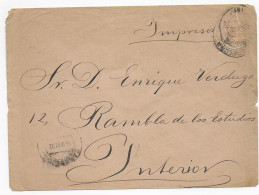 Impresos
Sr. D. Enrique Verdugo
12, Rambla de los Estudios
Interior